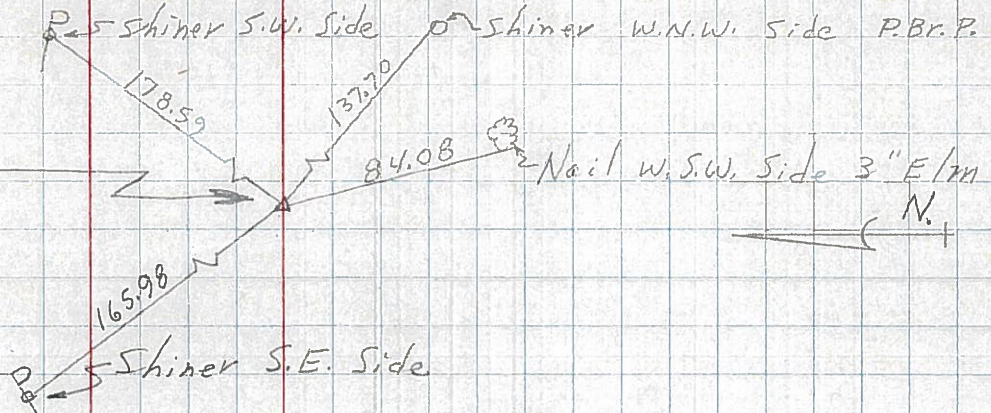 P Shiner S.W. Side
Shiner W.N.W. Side P.Br.P.
178.59
137.70
84.08
Nail W.S.W. Side 3" E/m
N.
165.98
P Shiner S.E. Side